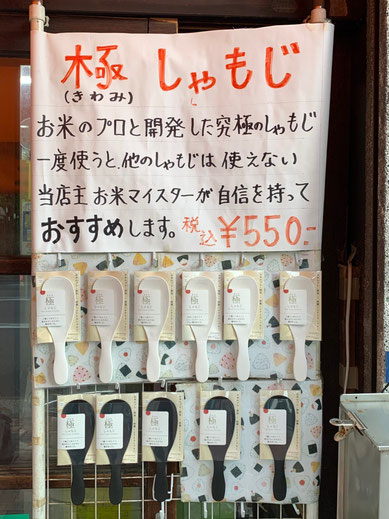 極 しゃもじ
(きわみ)
お米のプロと開発した究極のしゃもじ
一度使うと、他のしゃもじは、使えない
当店主 お米マイスターが 自信を持って
おすすめします。税込 ¥550.-
極 極 極 極 極 極
極 極 極 極 極